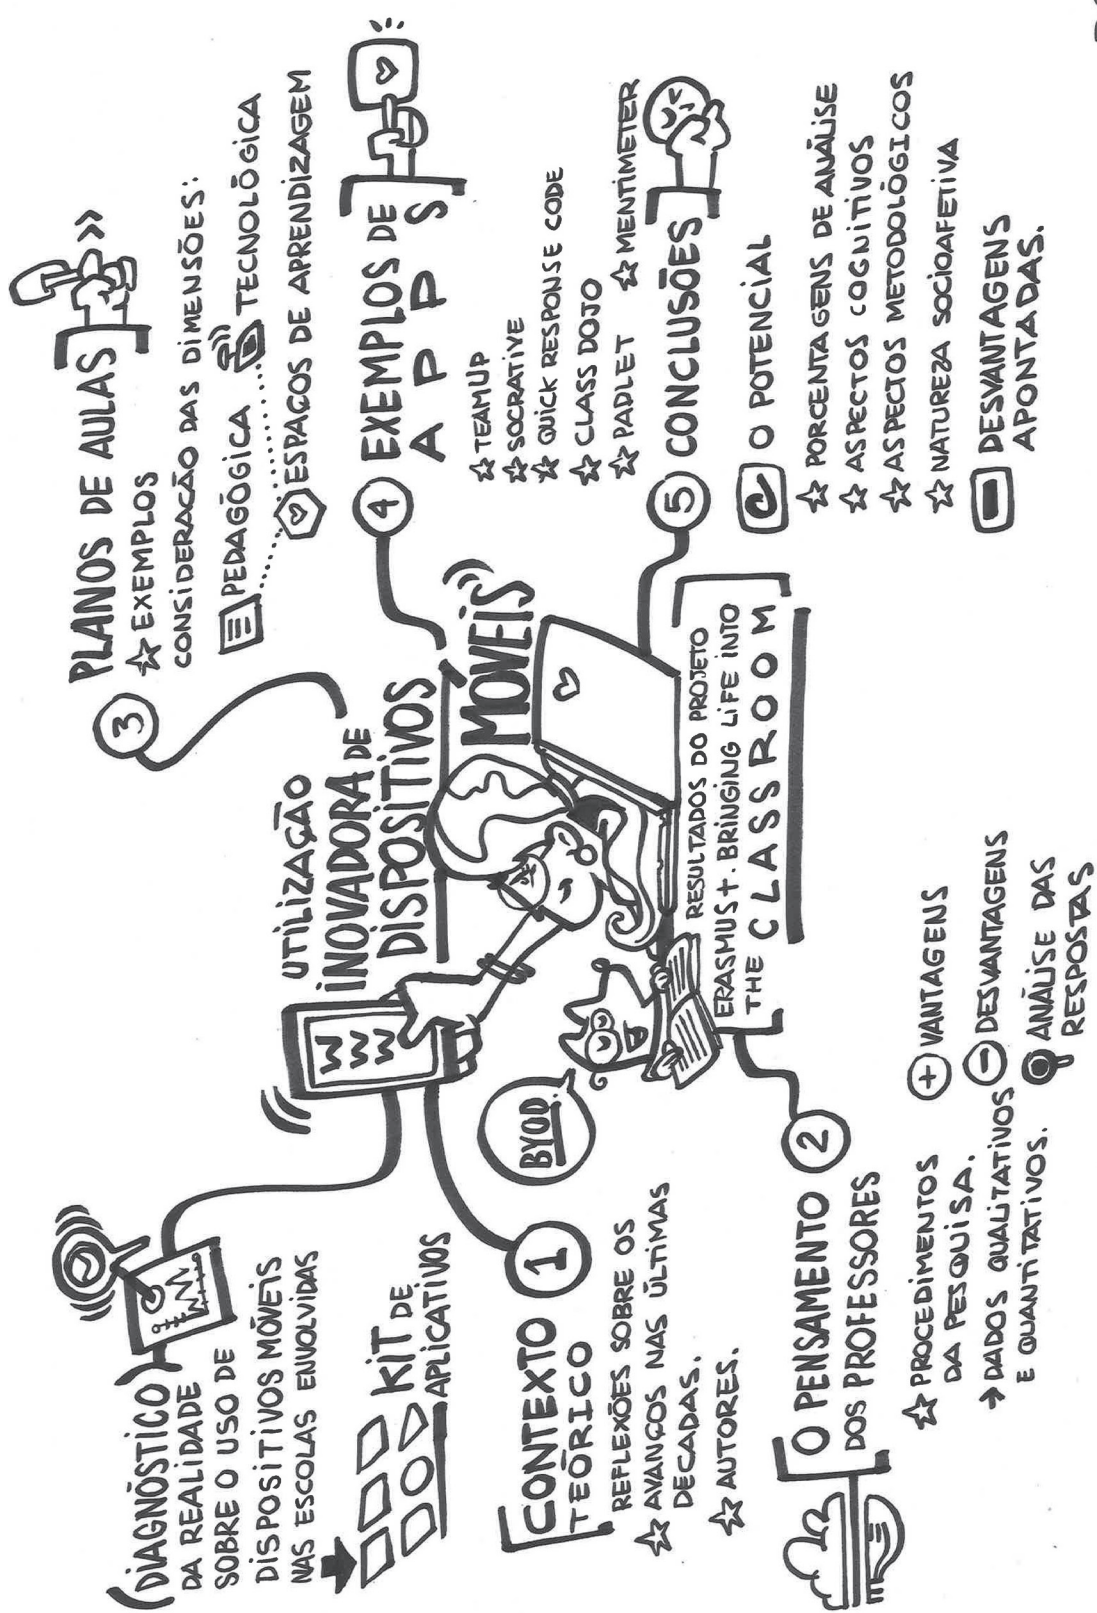 UTILIZAÇÃO
INOVADORA DE
DISPOSITIVOS
MÓVEIS
WWW
BYOD.
RESULTADOS DO PROJETO
ERASMUS+. BRINGING LIFE INTO
THE CLASSROOM
(DIAGNÓSTICO)
DA REALIDADE
SOBRE O USO DE
DISPOSITIVOS MÓVEIS
NAS ESCOLAS ENVOLVIDAS
KIT DE
APLICATIVOS
1
[CONTEXTO
TEÓRICO
REFLEXÕES SOBRE OS
AVANÇOS NAS ÚLTIMAS
DECADAS.
AUTORES.
2
[O PENSAMENTO
DOS PROFESSORES
PROCEDIMENTOS
DA PESQUISA.
→ DADOS QUALITATIVOS
E QUANTITATIVOS.
+ VANTAGENS
- DESVANTAGENS
ANÁLISE DAS
RESPOSTAS
3
PLANOS DE AULAS]
EXEMPLOS
CONSIDERAÇÃO DAS DIMENSÕES:
PEDAGÓGICA TECNOLÓGICA
ESPAÇOS DE APRENDIZAGEM
4
EXEMPLOS DE
APPS
TEAMUP
SOCRATIVE
QUICK RESPONSE CODE
CLASS DOJO
PADLET MENTIMETER
5
CONCLUSÕES]
O POTENCIAL
PORCENTAGENS DE ANÁLISE
ASPECTOS COGNITIVOS
ASPECTOS METODOLÓGICOS
NATUREZA SOCIOAFETIVA
DESVANTAGENS
APONTADAS.